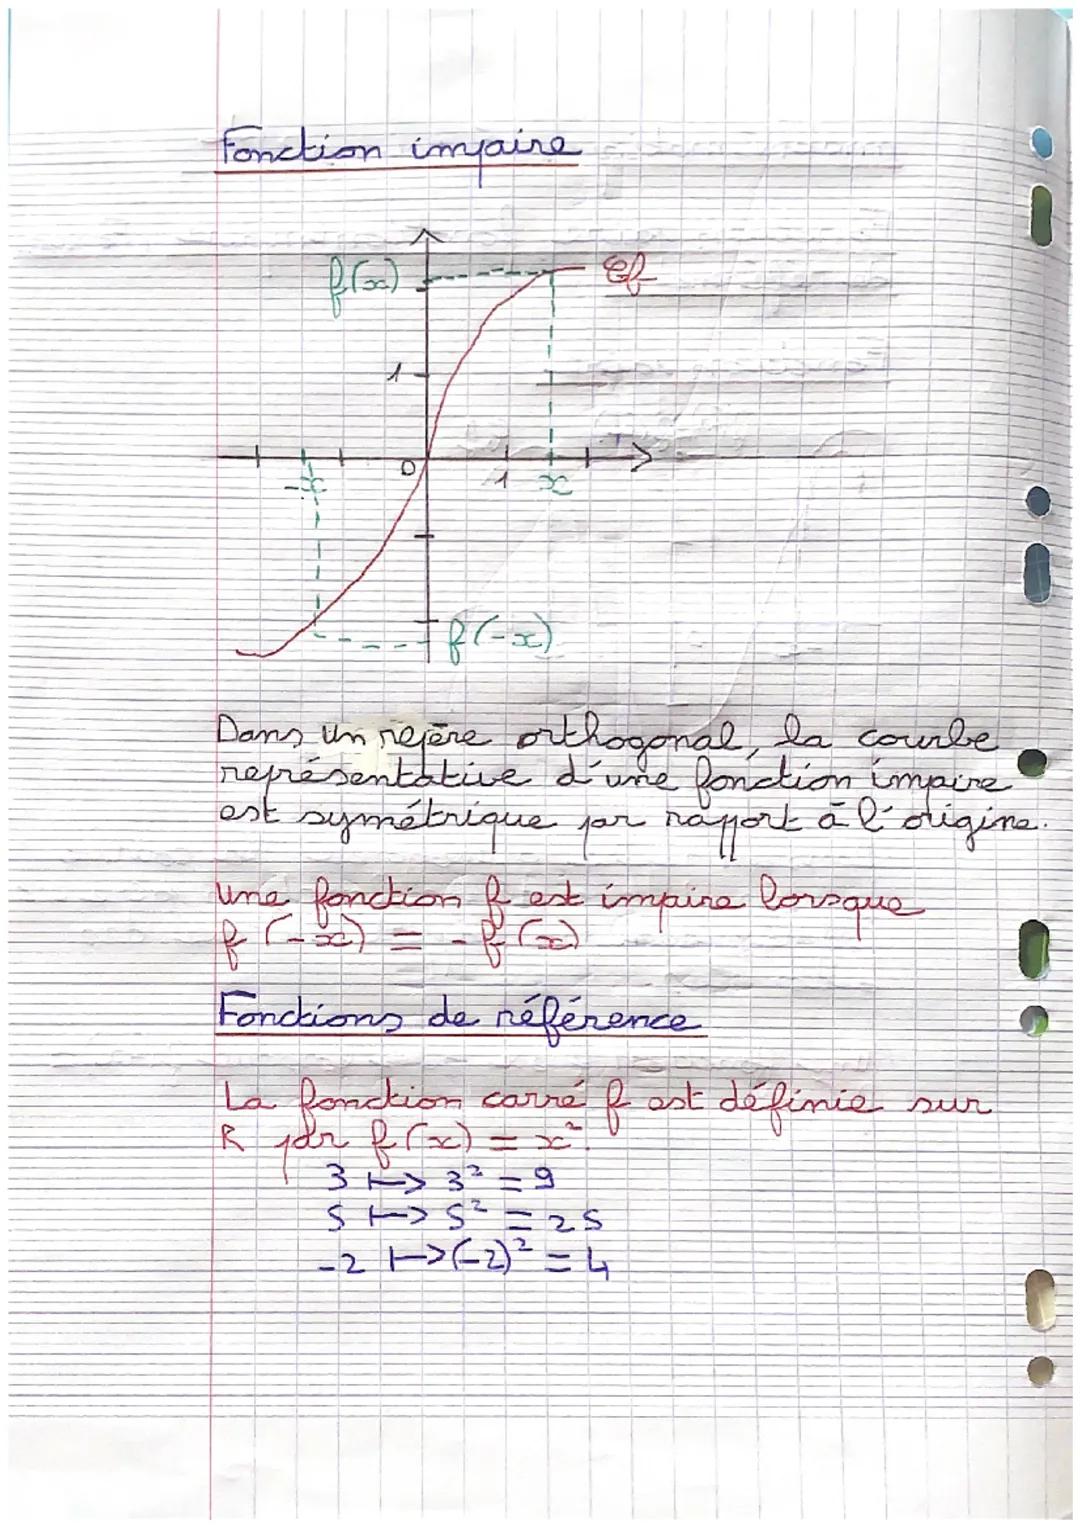 Fonction impaire
f(x)
Cf
1
0
-x
1
x
f(-x)
Dans un repère orthogonal, la courbe
représentative d'une fonction impaire
est symétrique par rapport à l'origine.
Une fonction f est impaire lorsque
f(-x) = -f(x)
Fonctions de référence
La fonction carré f est définie sur
R par f(x) = x².
3 ↦ 3² = 9
5 ↦ 5² = 25
-2 ↦ (-2)² = 4